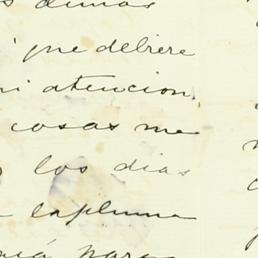 s demas
que debiere
mi atencion,
cosas me
los dias
la pluma
para